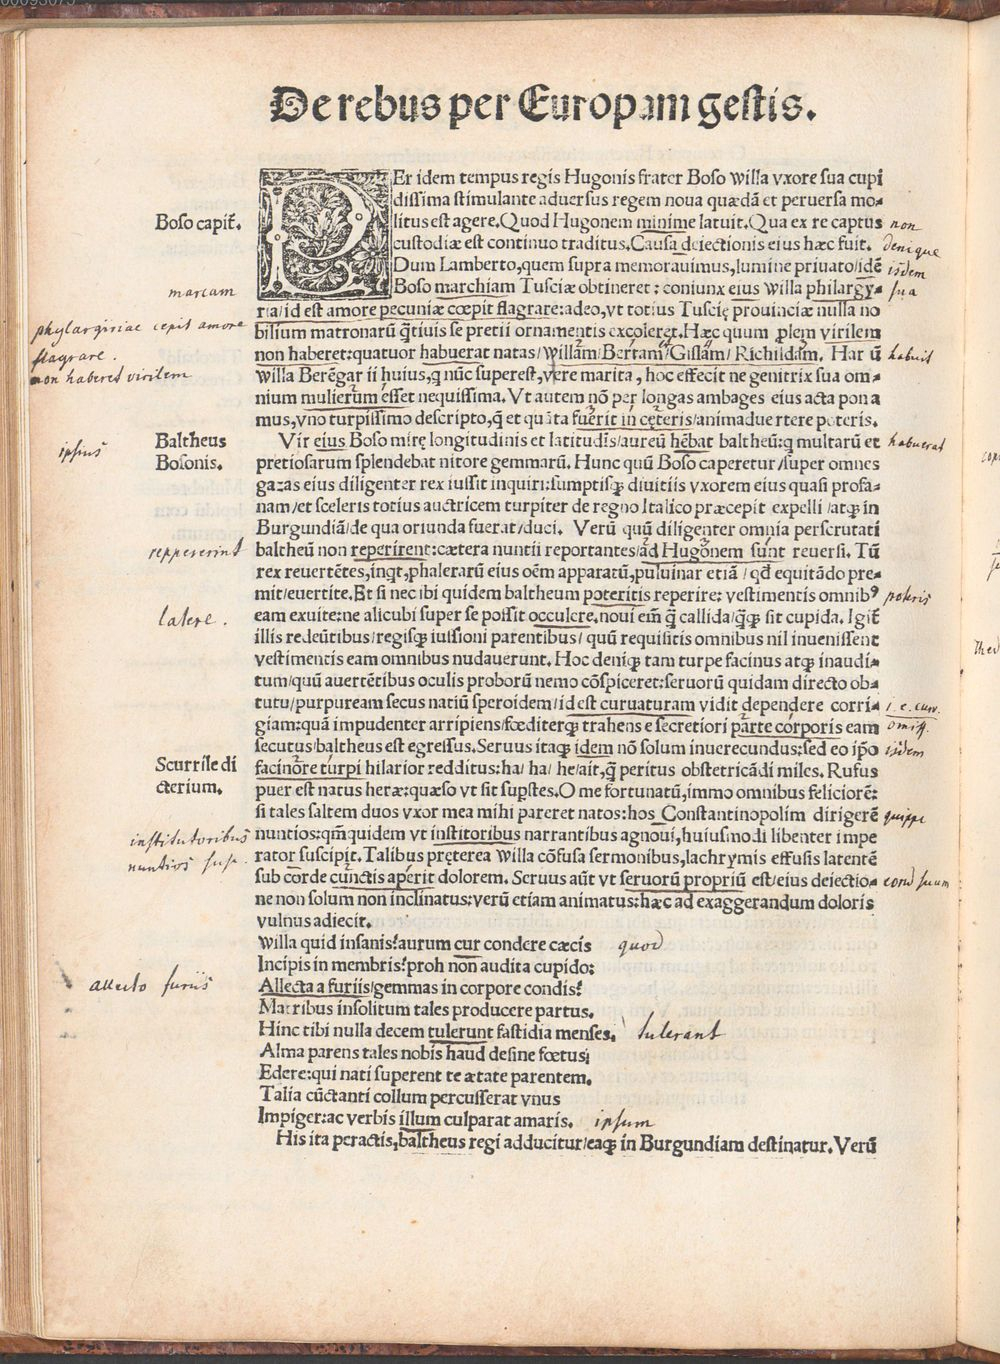 De rebus per Europam gestis.
PEr idem tempus regis Hugonis frater Boso Willa vxore sua cupi
dissima stimulante aduersus regem noua quædã et peruersa mo-
Boso capit̃. litus est agere. Quod Hugonem minime latuit. Qua ex re captus non
custodiæ est continuo traditus. Causa deiectionis eius hæc fuit. denique
Dum Lamberto, quem supra memorauimus, lumine priuato/idẽ isdem
marcam Boso marchiam Tusciæ obtineret: coniunx eius Willa philargy- sua
ria/id est amore pecuniæ cœpit flagrare: adeo, vt totius Tuscię prouinciæ nulla no
phylargiriae cepit amore bilium matronarũ q̃tiuis se pretii ornamentis excoleret. Hæc quum plem virilem
flagrare. non haberet: quatuor habuerat natas/Willam/Bertam/Gislam/Richildam. Har ũ habuit
non haberet virilem Willa Berẽgar ii huius, q nũc superest, vere marita, hoc effecit ne genitrix sua om-
nium mulierum esset nequissima. Vt autem nõ per longas ambages eius acta pona
mus, vno turpissimo descripto, q̃ et quãta fuerit in cęteris/animaduertere poteris.
Baltheus Vir eius Boso mirę longitudinis et latitudĩs/aureũ hẽbat baltheũ: q multarũ et habuerat
ipsius Bosonis. pretiosarum splendebat nitore gemmarũ. Hunc quũ Boso caperetur/super omnes
gazas eius diligenter rex iussit inquiri: sumptisq; diuitiis vxorem eius quasi profa-
nam/et sceleris totius auctricem turpiter de regno Italico præcepit expelli/atq; in
Burgundiã/de qua oriunda fuerat/duci. Verũ quũ diligenter omnia perscrutati
reppererint baltheũ non reperirent: cætera nuntii reportantes/ad Hugonem sunt reuersi. Tũ
rex reuertẽtes, inqt, phalerarũ eius oẽm apparatũ, puluinar etiã/qd̃ equitãdo pre-
mit/euertite. Et si nec ibi quidem baltheum poteritis reperire: vestimentis omnib⁹ poteris
latere. eam exuite: ne alicubi super se possit occulere. noui em̃ q̃ callida/q̃q; sit cupida. Igit̃
illis redeũtibus/regisq; iussioni parentibus/quũ requisitis omnibus nil inuenissent
vestimentis eam omnibus nudauerunt. Hoc deniq; tam turpe facinus atq; inaudi-
tum/quũ auertẽtibus oculis proborũ nemo cõspiceret: seruorũ quidam directo ob-
tutu/purpuream secus natiũ speroidem/id est curuaturam vidit dependere corri- i. e. curv.
giam: quã impudenter arripiens/fœditerq; trahens e secretiori parte corporis eam omiss.
secutus/baltheus est egressus. Seruus itaq; idem nõ solum inuerecundus: sed eo ip̃o isdem
Scurrile di facinore turpi hilarior redditus: ha/ha/he/ait, q̃ peritus obstetricãdi miles. Rufus
cterium. puer est natus heræ: quæso vt sit supstes. O me fortunatũ, immo omnibus feliciorẽ:
si tales saltem duos vxor mea mihi pareret natos: hos Constantinopolim dirigerẽ quippe
institutoribus nuntios: qm̃ quidem vt institoribus narrantibus agnoui, huiusmodi libenter impe
nuntios susp. rator suscipit. Talibus pręterea Willa cõfusa sermonibus, lachrymis effusis latentẽ
sub corde cunctis aperit dolorem. Seruus aũt vt seruorũ propriũ est/eius deiectio- cond suum
ne non solum non inclinatus: verũ etiam animatus: hæc ad exaggerandum doloris
vulnus adiecit.
Willa quid insanis? aurum cur condere cæcis quod
Incipis in membris? proh non audita cupido:
allecto furiis Allecta a furiis/gemmas in corpore condis?
Matribus insolitum tales producere partus.
Hinc tibi nulla decem tulerunt fastidia menses. tulerant
Alma parens tales nobis haud desine fœtus;
Edere: qui nati superent te ætate parentem.
Talia cũctanti collum percusserat vnus
Impiger: ac verbis illum culparat amaris. ipsum
His ita peractis, baltheus regi adducitur/eaq; in Burgundiam destinatur. Verũ